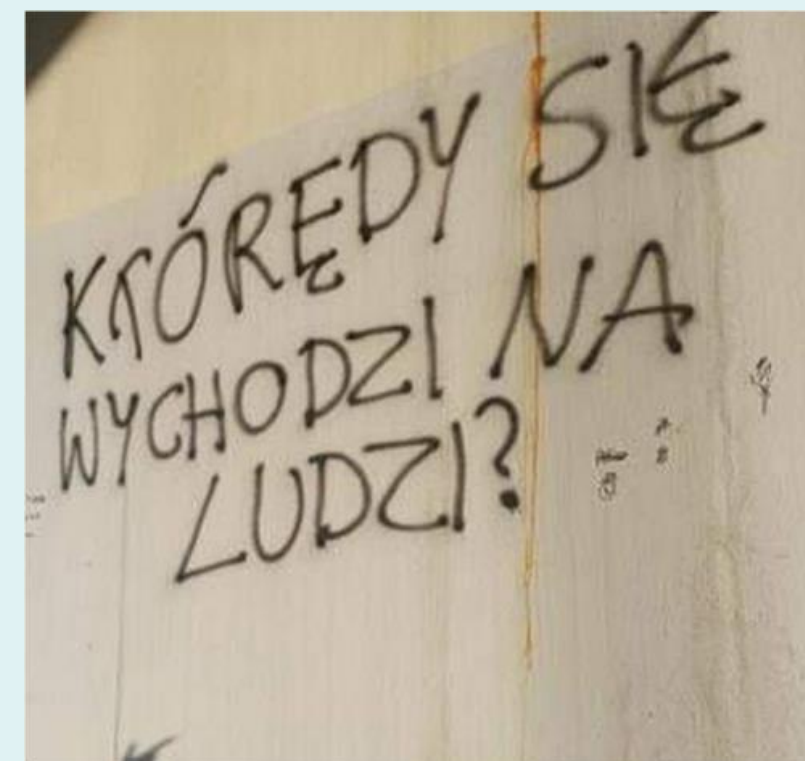 KTÓRĘDY SIĘ
WYCHODZI NA
LUDZI?